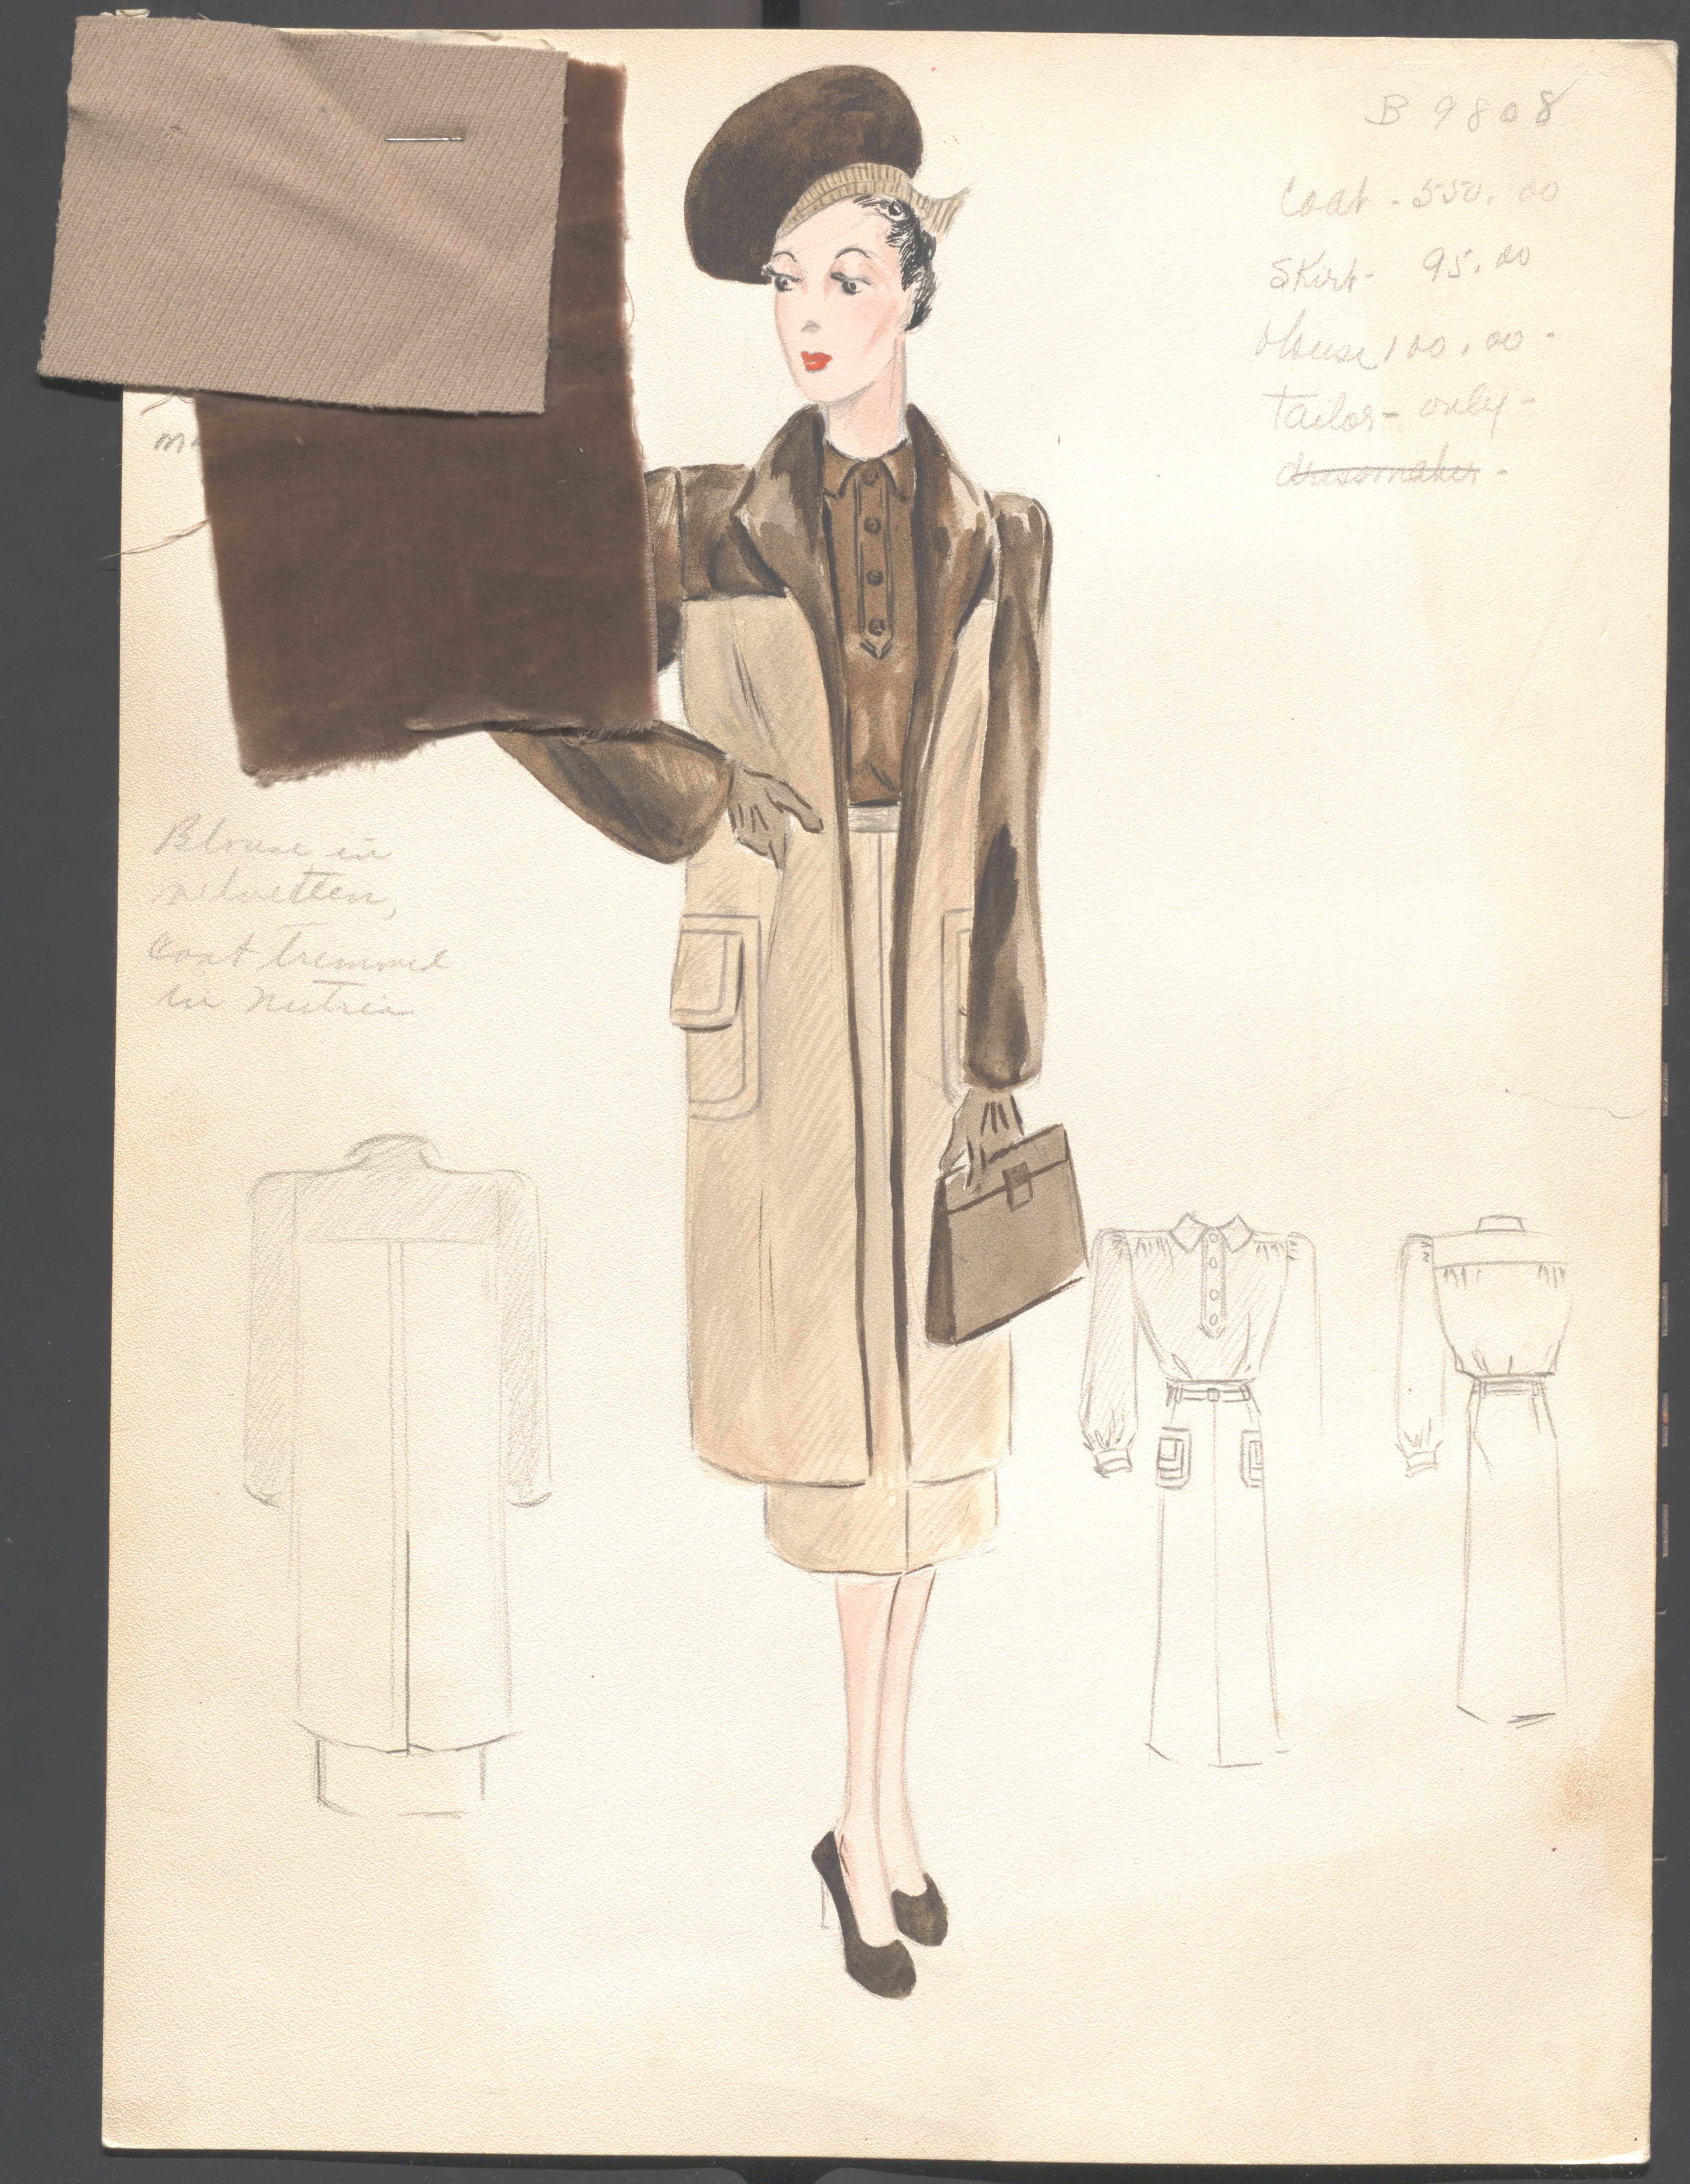 B 9808
Coat - 550.00
Skirt - 95.00
blouse 100.00 -
Tailor - only -
dressmaker -
Blouse in
velveteen,
coat tremmed
in nutria